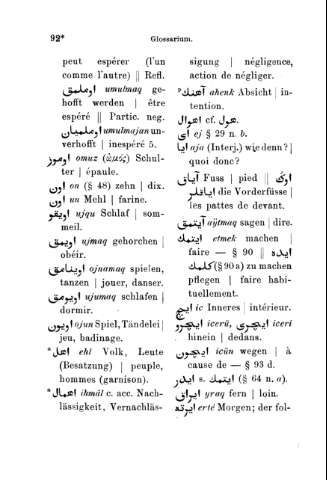 92*
Glossarium.
peut espérer (l'un
comme l'autre) || Refl.
اومولمق umulmaq ge-
hofft werden | être
espéré || Partic. neg.
umulmajan un-
verhofft | inespéré 5.
اوموز omuz (ὠμός) Schul-
ter | épaule.
اون on (§ 48) zehn | dix.
اون un Mehl | farine.
اويقو ujqu Schlaf | som-
meil.
اويمق ujmaq gehorchen |
obéir.
اوينامق ojnamaq spielen,
tanzen | jouer, danser.
اويومق ujumaq schlafen |
dormir.
اويون ojun Spiel, Tändelei |
jeu, badinage.
*اهل ehl Volk, Leute
(Besatzung) | peuple,
hommes (garnison).
*اهمال ihmâl c. acc. Nach-
lässigkeit, Vernachläs-
sigung | négligence,
action de négliger.
آهنك ahenk Absicht | in-
tention.
اهوال cf. هول.
اى ej § 29 n. b.
ايا aja (Interj.) wie denn? |
quoi donc?
آياق Fuss | pied || اوك
اياقلر die Vorderfüsse |
les pattes de devant.
آيتمق aÿtmaq sagen | dire.
ايتمك etmek machen |
faire — § 90 || ايده
كلمك (§ 90 a) zu machen
pflegen | faire habi-
tuellement.
ايچ ic Inneres | intérieur.
ايچرو icerü, ايچرى iceri
hinein | dedans.
ايچون icün wegen | à
cause de — § 93 d.
ايدر s. ايتمك (§ 64 n. a).
ايراق yraq fern | loin.
ايرته erté Morgen; der fol-